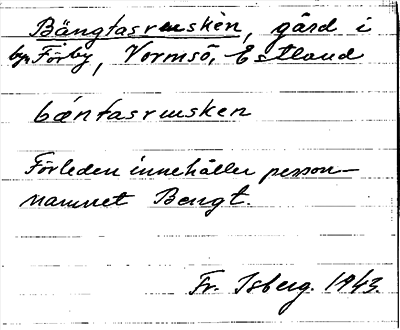 Bängtasrusken, gård i
byn Förby, Vormsö, Estland
bæntasrusken
Förleden innehåller person-
namnet Bengt.
Fr. Isberg. 1943.